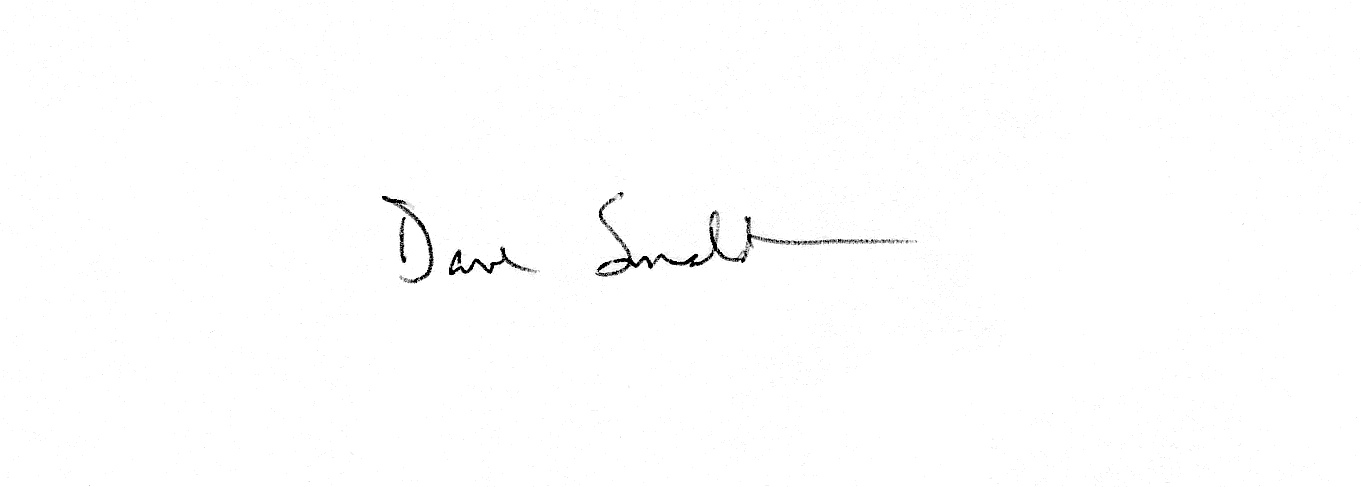 Dave Smalt